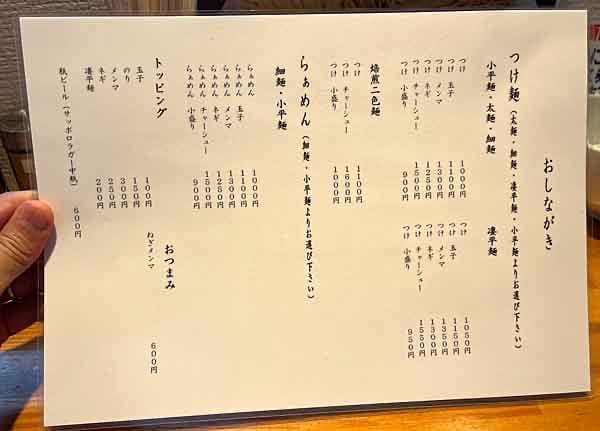 おしながき
つけ麺(太麺・細麺・凄平麺・小平麺よりお選び下さい)
小平麺・太麺・細麺
つけ 1000円
つけ 玉子 1100円
つけ メンマ 1300円
つけ ネギ 1250円
つけ チャーシュー 1500円
つけ 小盛り 900円
凄平麺
つけ 1050円
つけ 玉子 1150円
つけ メンマ 1350円
つけ ネギ 1300円
つけ チャーシュー 1550円
つけ 小盛り 950円
焙煎二色麺
つけ 1100円
つけ チャーシュー 1600円
つけ 小盛り 1000円
らぁめん(細麺・小平麺よりお選び下さい)
細麺・小平麺
らぁめん 1000円
らぁめん 玉子 1100円
らぁめん メンマ 1300円
らぁめん ネギ 1250円
らぁめん チャーシュー 1500円
らぁめん 小盛り 900円
トッピング
玉子 100円
のり 150円
メンマ 300円
ネギ 250円
凄平麺 200円
瓶ビール(サッポロラガー中瓶) 600円
おつまみ
ねぎメンマ 600円